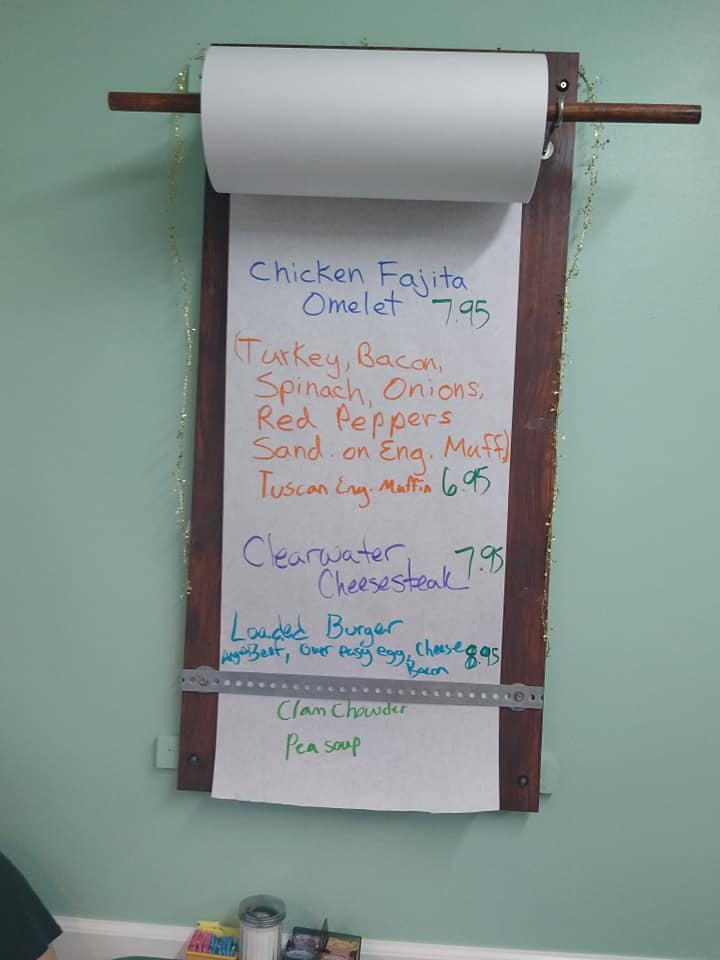 Chicken Fajita
Omelet 7.95
(Turkey, Bacon,
Spinach, Onions,
Red Peppers
Sand. on Eng. Muff)
Tuscan Eng. Muffin 6.95
Clearwater 7.95
Cheesesteak
Loaded Burger
Beef, over easy egg, Cheese 8.95
Bacon
Clam Chowder
Pea soup